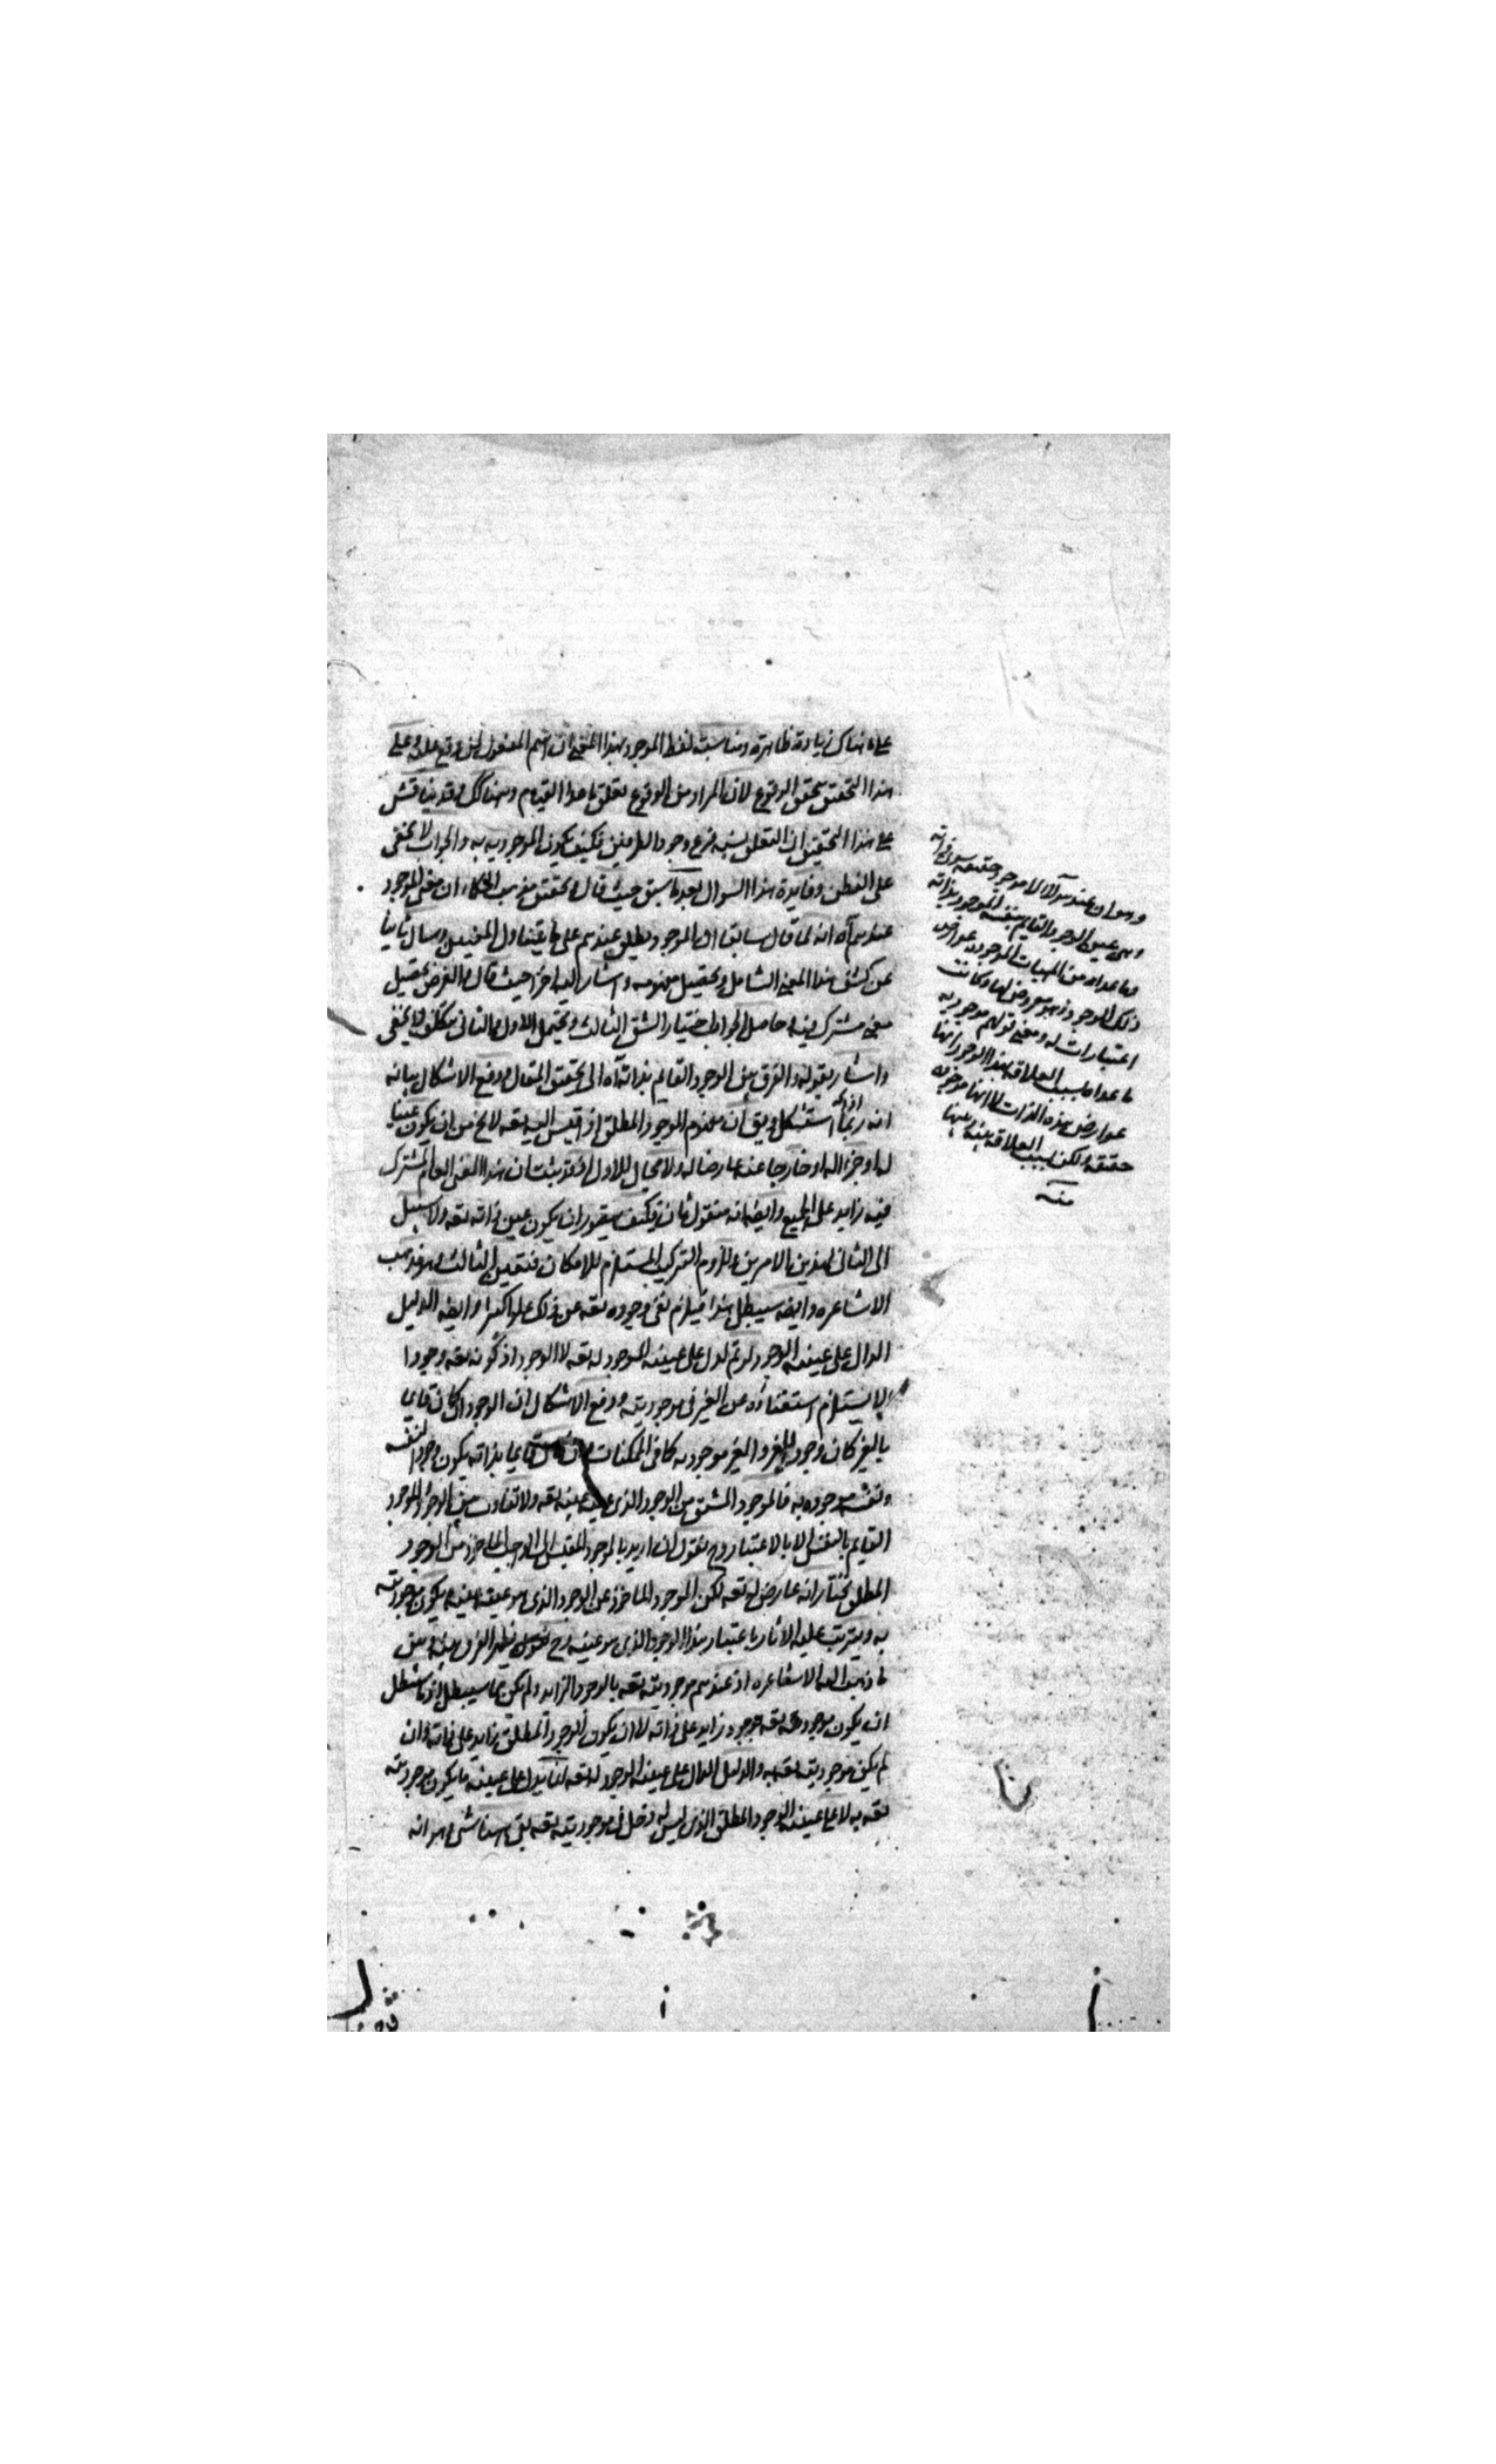 هناك زيادة ظاهرة ومناسبة لفظ الموجود بهذا المعنى ان اسم المفعول لمن وقع عليه وعلى
هذا التحقيق تحقق الوقوع لان المراد من الوقوع تعلق ما هذا القيام وهناك وقد يناقش
على هذا التحقيق ان التعلق نسبة فرع وجود الطرفين فكيف يكون الموجودية به والجواب لا يخفى
على الفطن وفايدة هذا السوال بعد ما سبق حيث قال تحقيق مذهب الحكماء ان معنى الموجود
عندهم اه انه لما قال سابقا ان الموجود يطلق عندهم على ما يتناول المعنيين وسال ثانيا
عن كشف هذا المعنى الشامل وتحصيل مفهومه واشار اليه اخرا حيث قال الغرض تحصيل
معنى مشترك فيه حاصل الجواب اختيار الشق الثالث ويحتمل الاول والثانى بتكلف لا يخفى
واشار بقوله والفرق بين الوجود القايم بذاته اه الى تحقيق المقال ودفع الاشكال بيانه
انه ربما استشكل ويق ان مفهوم الوجود المطلق اذا قيس اليه تعه لا يخ من ان يكون عينا
له او جزءا له او خارجا عنه عارضا له ولا مجال للاول اذ قد ثبت ان هذا المعنى العام المشترك
فيه زايد على الجميع وايضا انه معقول ثان فكيف يتصور ان يكون عين ذاته تعه ولا سبيل
الى الثانى لهذين الامرين وللزوم التركيب المستلزم للامكان فتعين الثالث وهو مذهب
الاشاعره وايضه سيبطل هذا فيلزم نفى وجوده تعه عن ذلك علوا كبيرا وايضه الدليل
الدال على عينية الوجود لو تم لدل على عينية الموجود له تعه لا الوجود اذ كونه تعه وجودا
لا يستلزم استغناؤه عن الغير فى موجوديته ودفع الاشكال ان الوجود ان كان قايما
بالغير كان وجود الغير والغير موجود به كما فى الممكنات وان كان قايما بذاته يكون وجودا لنفسه
ونفسه موجوده به فالموجود المشتق من الوجود الذى عينه عينه تعه ولا تفاوت بين الوجود والموجود
القايم بالنفس الا بالاعتبار وح نقول ان اريد بالموجود المقيس الى الواجب الماخوذ من الوجود
المطلق نختار انه عارض له تعه لكن الموجود الماخوذ عن الوجود الذى هو عينه عينه ويكون موجوديته
به ويترتب عليه الاثار باعتبار هذا الوجود الذى هو عينه وح يظهر الفرق بينه وبين
ما ذهب اليه الاشاعره اذ عندهم موجوديته تعه بالوجود الزايد ولم يكن مما سيبطل اذ ما يبطل
ان يكون موجوديته تعه بوجود زايد على ذاته لا ان يكون الوجود المطلق زايد على ذاته وان
لم يكن موجوديته تعه به والدليل الدال على عينية الوجود له تعه انما يدل على عينية ما يكون موجوديته
تعه به لا على عينية الوجود المطلق الذى ليس له دخل فى موجوديته تعه بقى هنا شى وهو انه
وهو ان عند هؤلاء لا موجود حقيقه سوى ذاته
وهى عين الوجود القايم بنفسه الموجود بذاته
وما عداه من المهيات الموجوده عوارض
ذلك الوجود وهو معروض لها وكانت
اعتبارات له ومعنى قولهم موجوديه
ما عداه بسبب العلاقه بهذا الوجود انها
عوارض هذه الذات لا انها موجوده
حقيقه لكن بسبب العلاقه بينه وبينها
منه